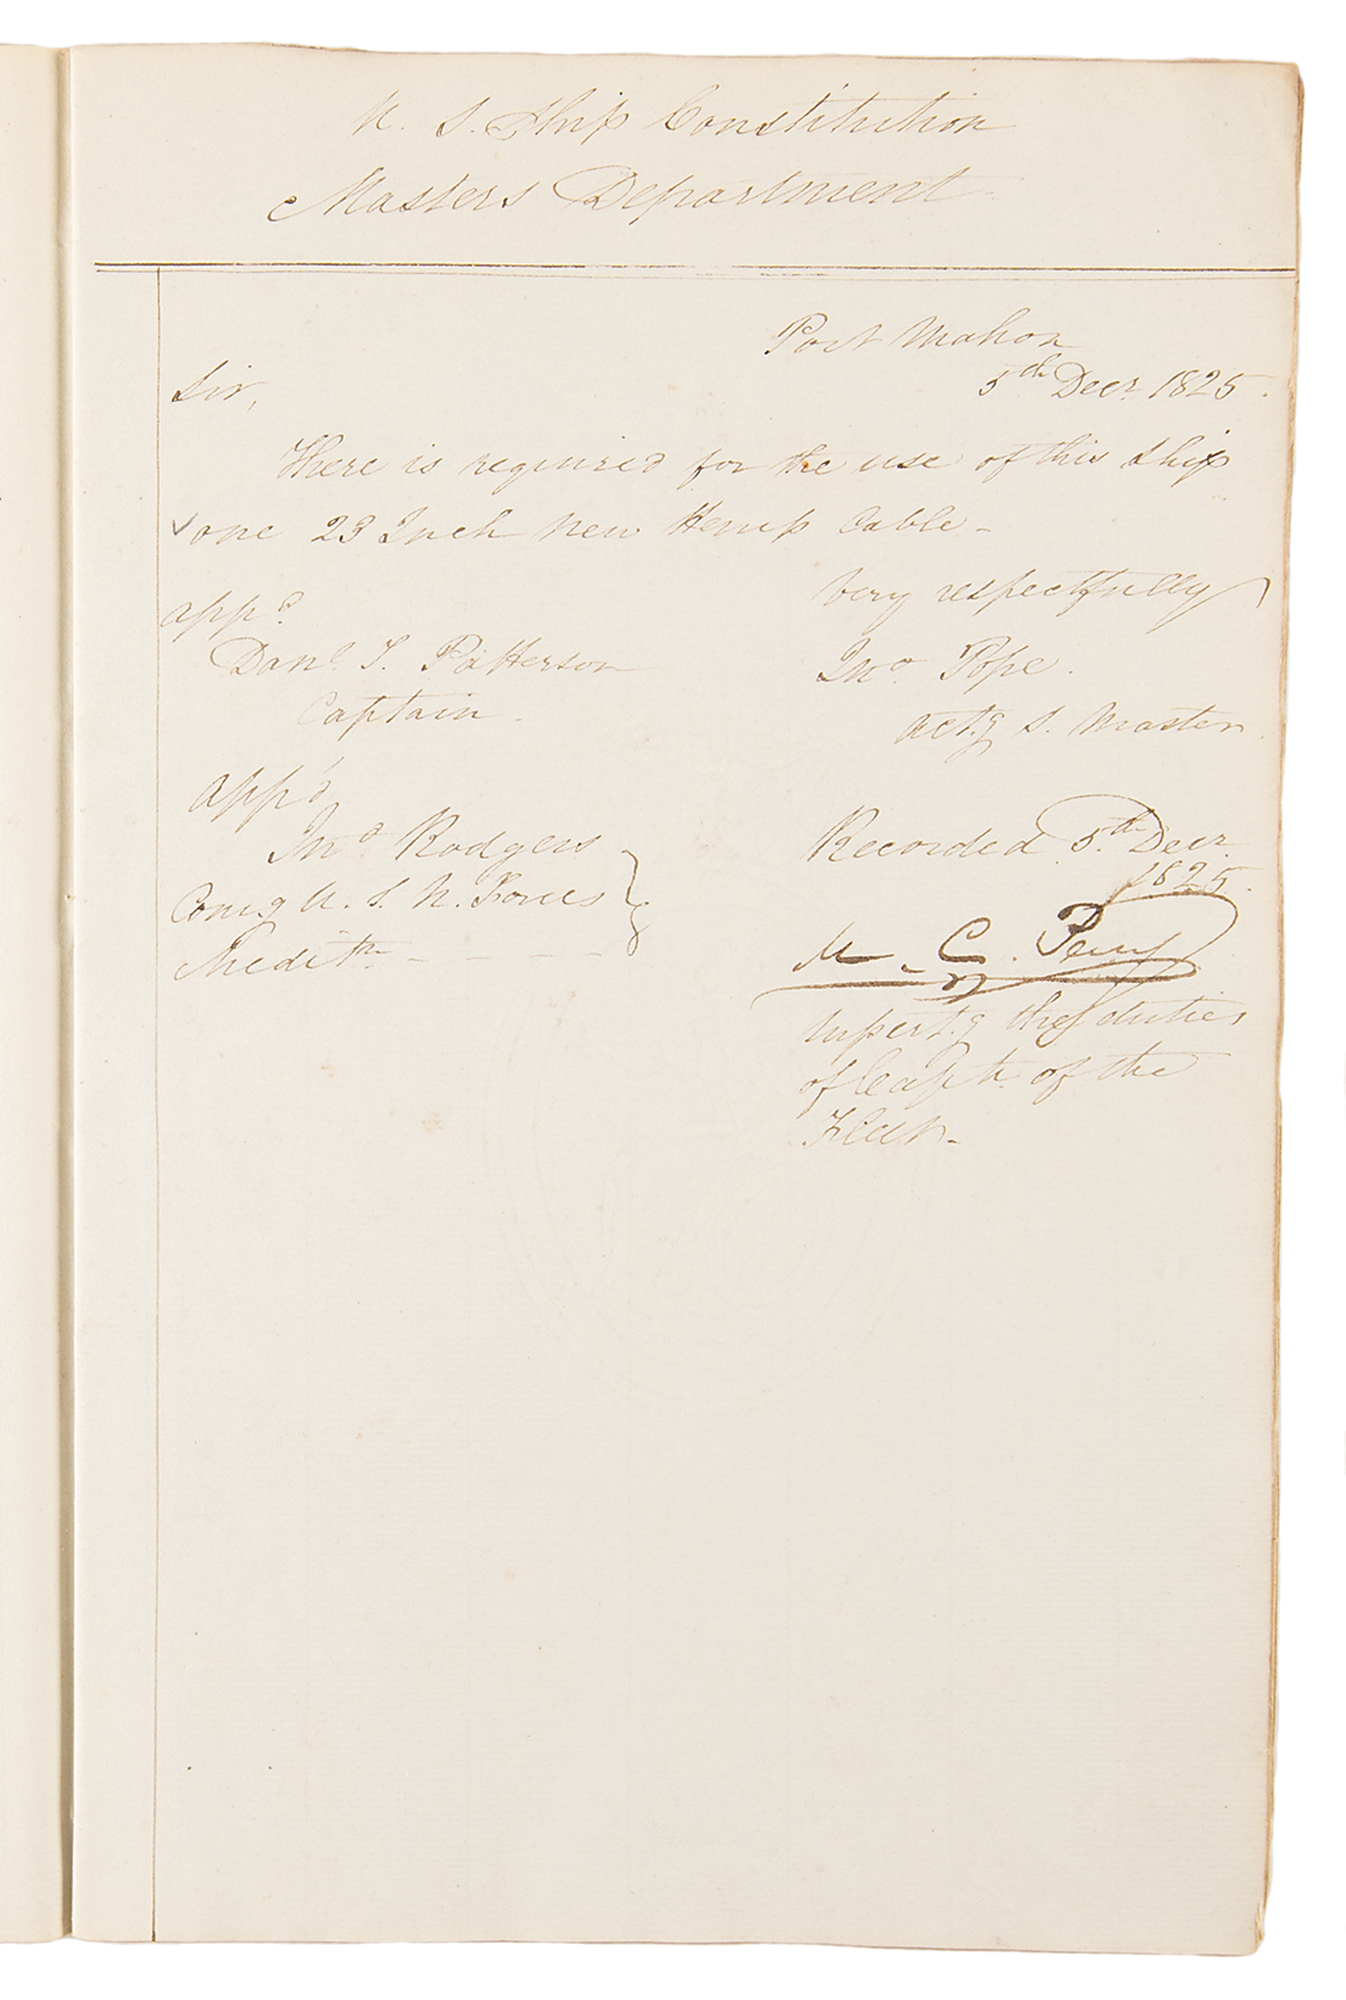 U. S. Ship Constitution
Masters Department
Port Mahon
5th Decr. 1825.
Sir,
There is required for the use of this Ship
one 23 Inch New Hemp Cable -
Very respectfully
Jno. Pope.
Act.g S. Master.
app.d
Dan.l T. Patterson
Captain.
app'd
Jno. Rodgers
Com.g U. S. N. Forces
Medit.n - - - -
Recorded 5.th Decr.
1825.
M. C. Perry
the duties
of Capt. of the
Fleet -